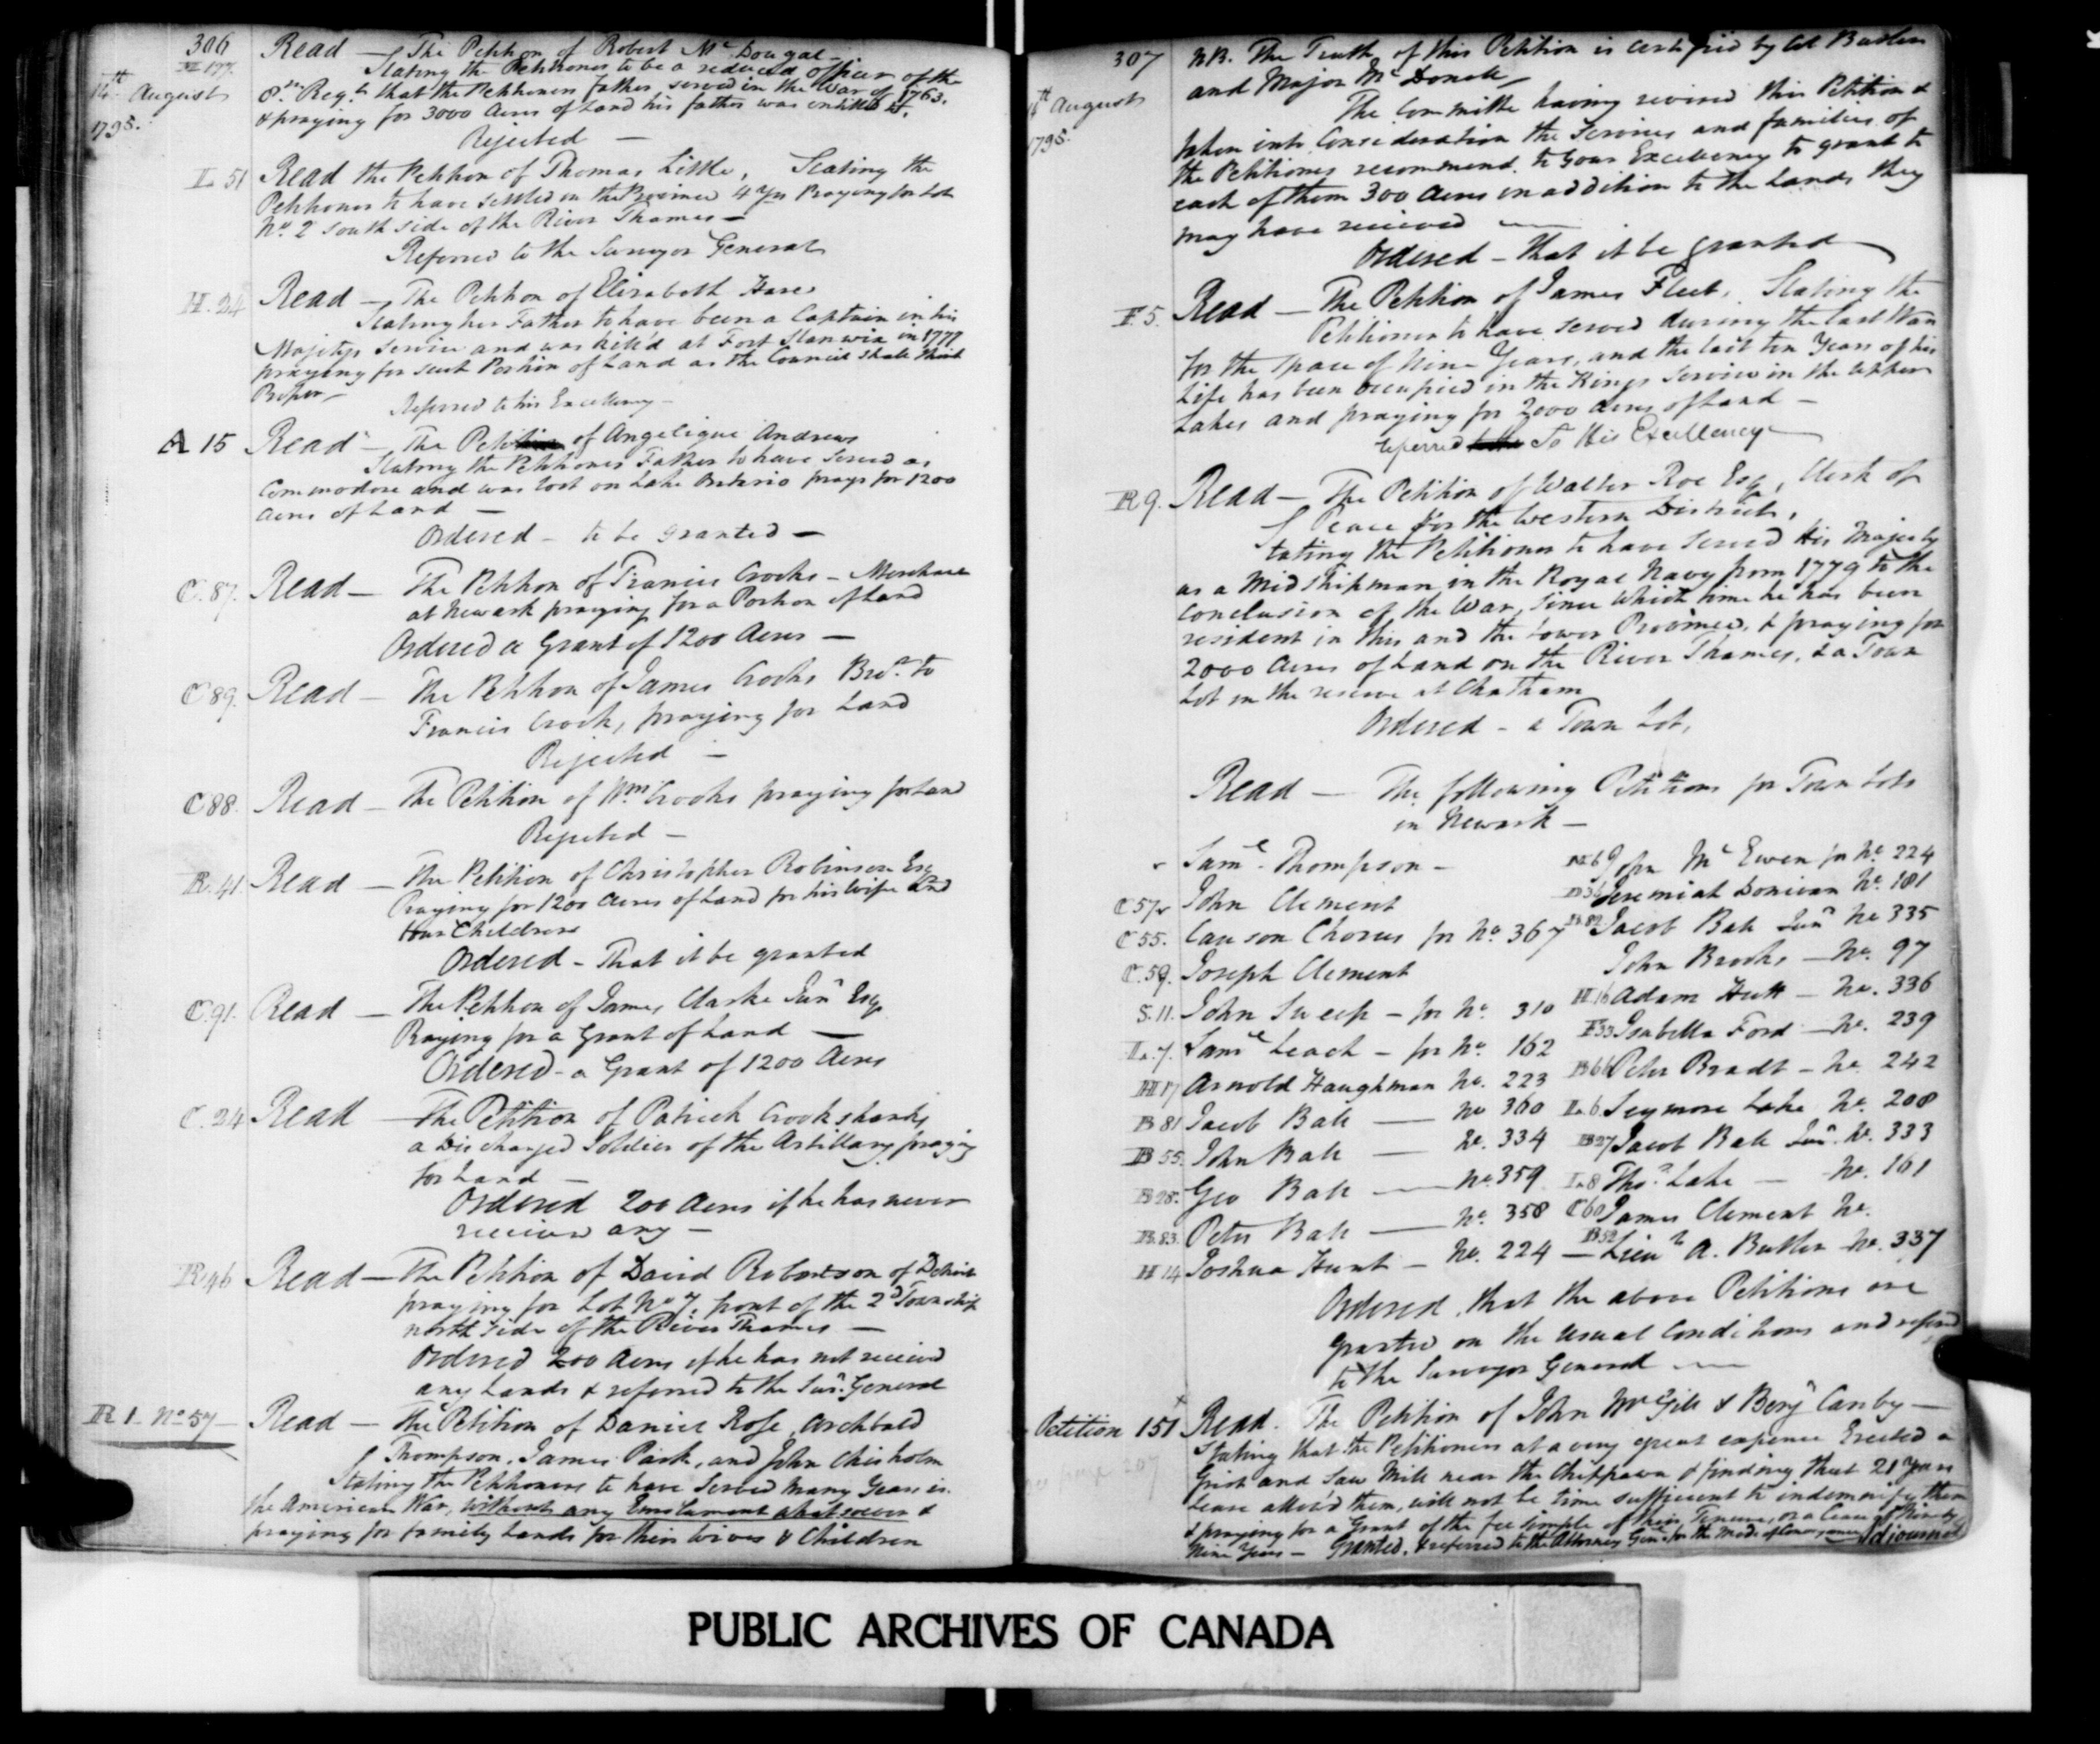 306
M 177.
14th August
1795.
Read — The Petition of Robert Mc Dougal —
Stating the Petitioner to be a reduced officer of the
8th Regt. that the Petitioners father served in the War of 1763.
& praying for 3000 Acres of Land his father was entitled to.
Rejected —
L 51 Read the Petition of Thomas Little, Stating the
Petitioner to have settled in the Province 4 Yrs Praying for Lot
No. 2 south side of the River Thames —
Referred to the Surveyor General
H. 24 Read — The Petition of Elizabeth Hare
Stating her Father to have been a Captain in his
Majestys Service and was kill'd at Fort Stanwix in 1777
praying for such Portion of Land as the Council shall think
Proper —
Referred to his Excellency —
A 15 Read — The Petition of Angelique Andrews
Stating the Petitioners Father to have served as
Commodore and was lost on Lake Ontario prays for 1200
Acres of Land —
Ordered — to be granted —
C. 87. Read — The Petition of Francis Crooks — Merchant
at Newark praying for a Portion of Land
Ordered a Grant of 1200 Acres —
C 89. Read — The Petition of James Crooks Bro. to
Francis Crook, praying for Land
Rejected —
C 88. Read — The Petition of Wm Crooks praying for Land
Rejected —
R. 41. Read — The Petition of Christopher Robinson Esqr
Praying for 1200 Acres of Land for his wife and
four Children
Ordered — That it be granted
C. 91. Read — The Petition of James Clarke Junr Esqr
Praying for a Grant of Land —
Ordered — a Grant of 1200 Acres
C. 24 Read — The Petition of Patrick Crookshanks
a Discharged Soldier of the Artillery praying
for Land —
Ordered 200 Acres if he has never
received any —
R 46 Read — The Petition of David Robertson of Detroit
praying for Lot No 7. front of the 2d Township
north side of the River Thames —
Ordered 200 Acres if he has not received
any Lands & referred to the Surr. General
R 1. No 57 — Read — The Petition of Daniel Rose, Archbald
Thompson, James Park, and John Chisholm
Stating the Petitioners to have served many Years in
the American War, without any Emolument whatsoever &
praying for family Lands for their Wives & Children
307
14th August
1795.
NB. The Truth of this Petition is certified by Col Butler
and Major Mc Donell
The Committee having revised this Petition &
taken into Consideration the Services and families of
the Petitioners recommend to Your Excellency to grant to
each of them 300 Acres in addition to the Lands they
may have received —
Ordered — that it be granted
F 5. Read — The Petition of James Fleet, Stating the
Petitioner to have served during the last War
for the space of Nine Years, and the last ten Years of his
Life has been occupied in the Kings Service in the upper
Lakes and praying for 2000 Acres of Land —
referred To His Excellency —
R 9. Read — The Petition of Walter Roe Esqr, Clerk of
Peace for the Western District,
Stating the Petitioner to have served His Majesty
as a Midshipman in the Royal Navy from 1779 to the
conclusion of the War, since which time he has been
resident in this and the Lower Province, & praying for
2000 Acres of Land on the River Thames, & a Town
Lot in the reserve at Chatham
Ordered — a Town Lot,
Read — The following Petitions for Town Lots
in Newark —
Saml. Thompson —
C 57 John Clement
C 55. Cawson Chorus for No. 367
C. 59. Joseph Clement
S. 11. John Sweep — for No. 310
L. 7. Saml Leach — for No. 162
H 17 Arnold Haughman No. 223
B 81 Jacob Ball — No 360
B 55. John Ball — No. 334
B 28. Geo Ball — No. 359
B. 83. Peter Ball — No. 358
H 14 Joshua Hunt — No. 224
M 6 John Mc Ewen for No. 224
D 36 Jeremiah Donivan No. 181
B 82 Jacob Ball Junr No 335
John Brooks — No. 97
H 16 Adam Hutt — No. 336
F 33 Isabella Ford — No. 239
B 66 Peter Bradt — No. 242
L. 6. Seymore Lake No. 208
B 27 Jacob Ball Junr. No. 333
L. 8 Thos. Lake — No. 161
C 60 James Clement No.
B 52 — Lieut A. Butler No. 337
Ordered, that the above Petitions are
granted on the usual Conditions and referred
to the Surveyor General —
Petition 151 Read. The Petition of John McGill & Benj Canby —
Stating that the Petitioners at a very great expence Erected a
Grist and Saw Mill near the Chippawa & finding that 21 Years
Lease allow'd them, will not be time sufficient to indemnify them
& praying for a Grant of the fee simple of their Tenure, or a Lease of Ninety
Nine Years — Granted, & referred to the Attorney Genl. for the Mode of Conveyance — Adjourned
PUBLIC ARCHIVES OF CANADA